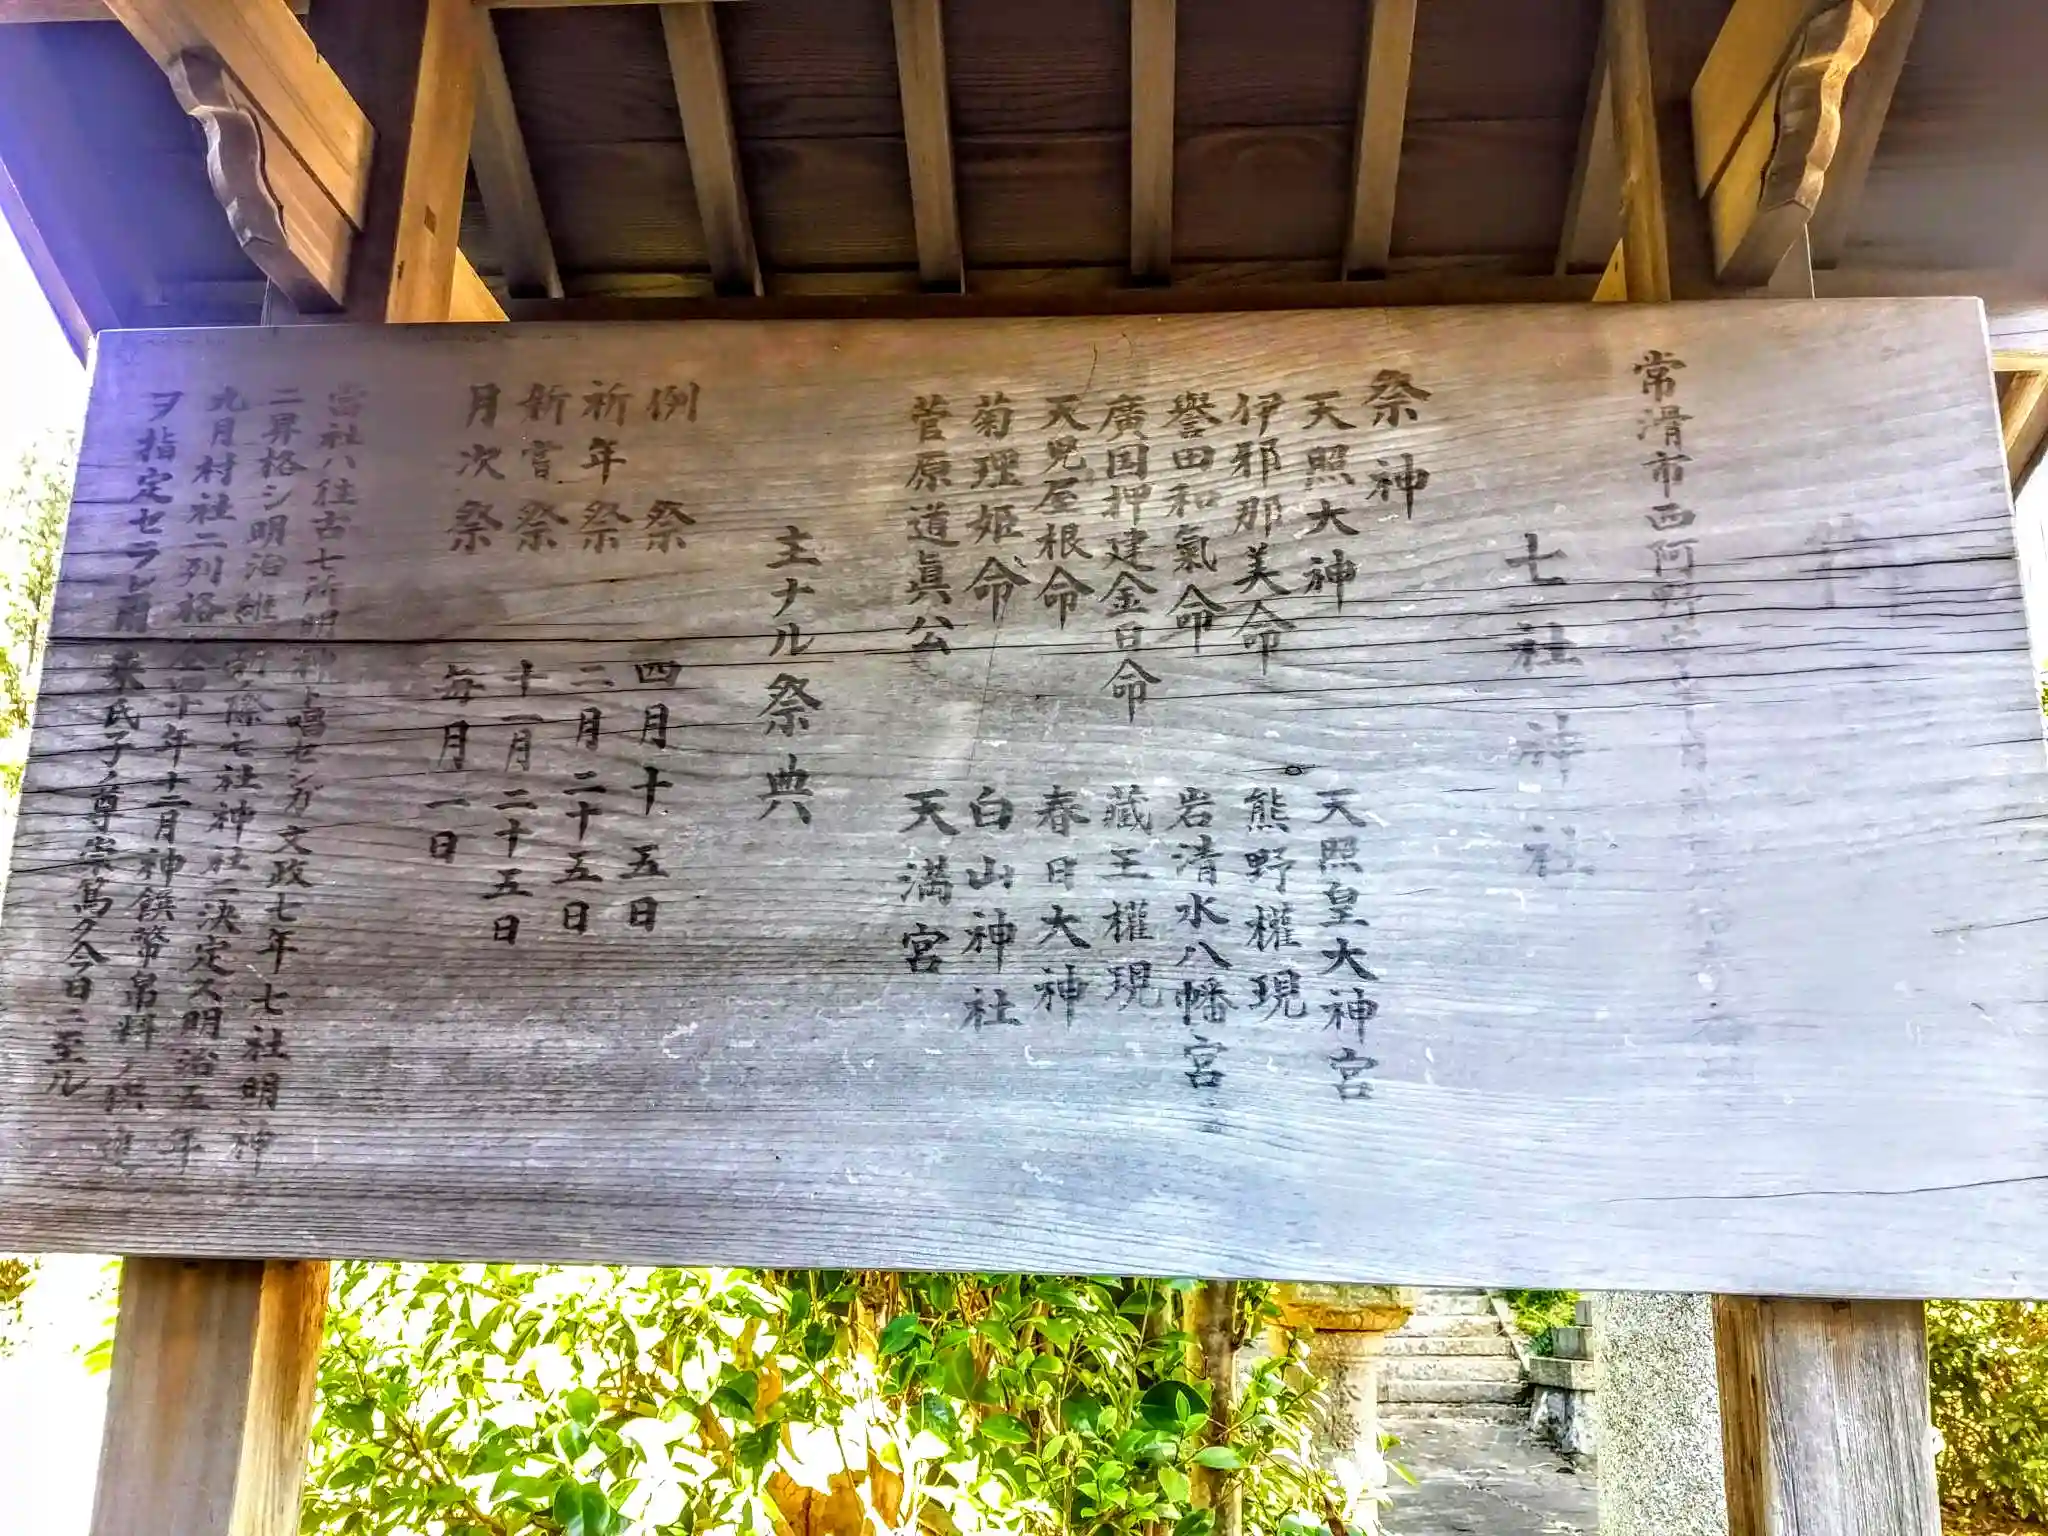 常滑市西阿野
七社神社
祭神
天照大神 天照皇大神宮
伊邪那美命 熊野權現
譽田和氣命 岩清水八幡宮
廣国押建金日命 藏王權現
天児屋根命 春日大神
菊理姫命 白山神社
菅原道眞公 天満宮
主ナル祭典
例祭 四月十五日
祈年祭 二月二十五日
新嘗祭 十一月二十五日
月次祭 毎月一日
當社ハ往古七所明神ト唱セシガ文政七年七社明神
ニ昇格シ明治維新ノ際七社神社ニ決定ス明治五年
九月村社ニ列格 仝四十年十二月神饌幣帛料ノ供進
ヲ指定セラレ爾来氏子ノ尊崇篤ク今日ニ至ル